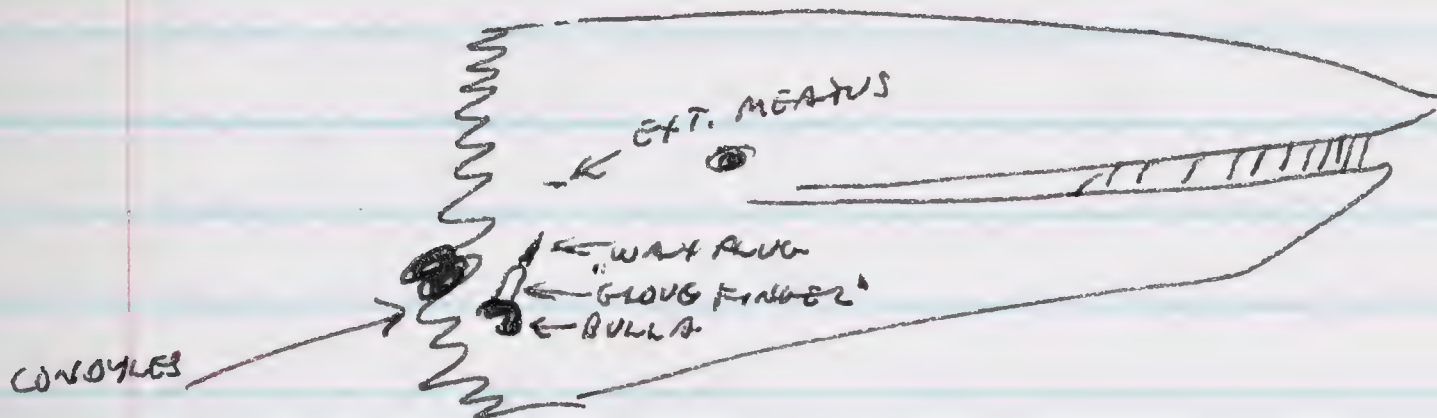 EXT. MEATUS
WAX PLUG
"GLOVE FINGER"
BULLA
CONDYLES